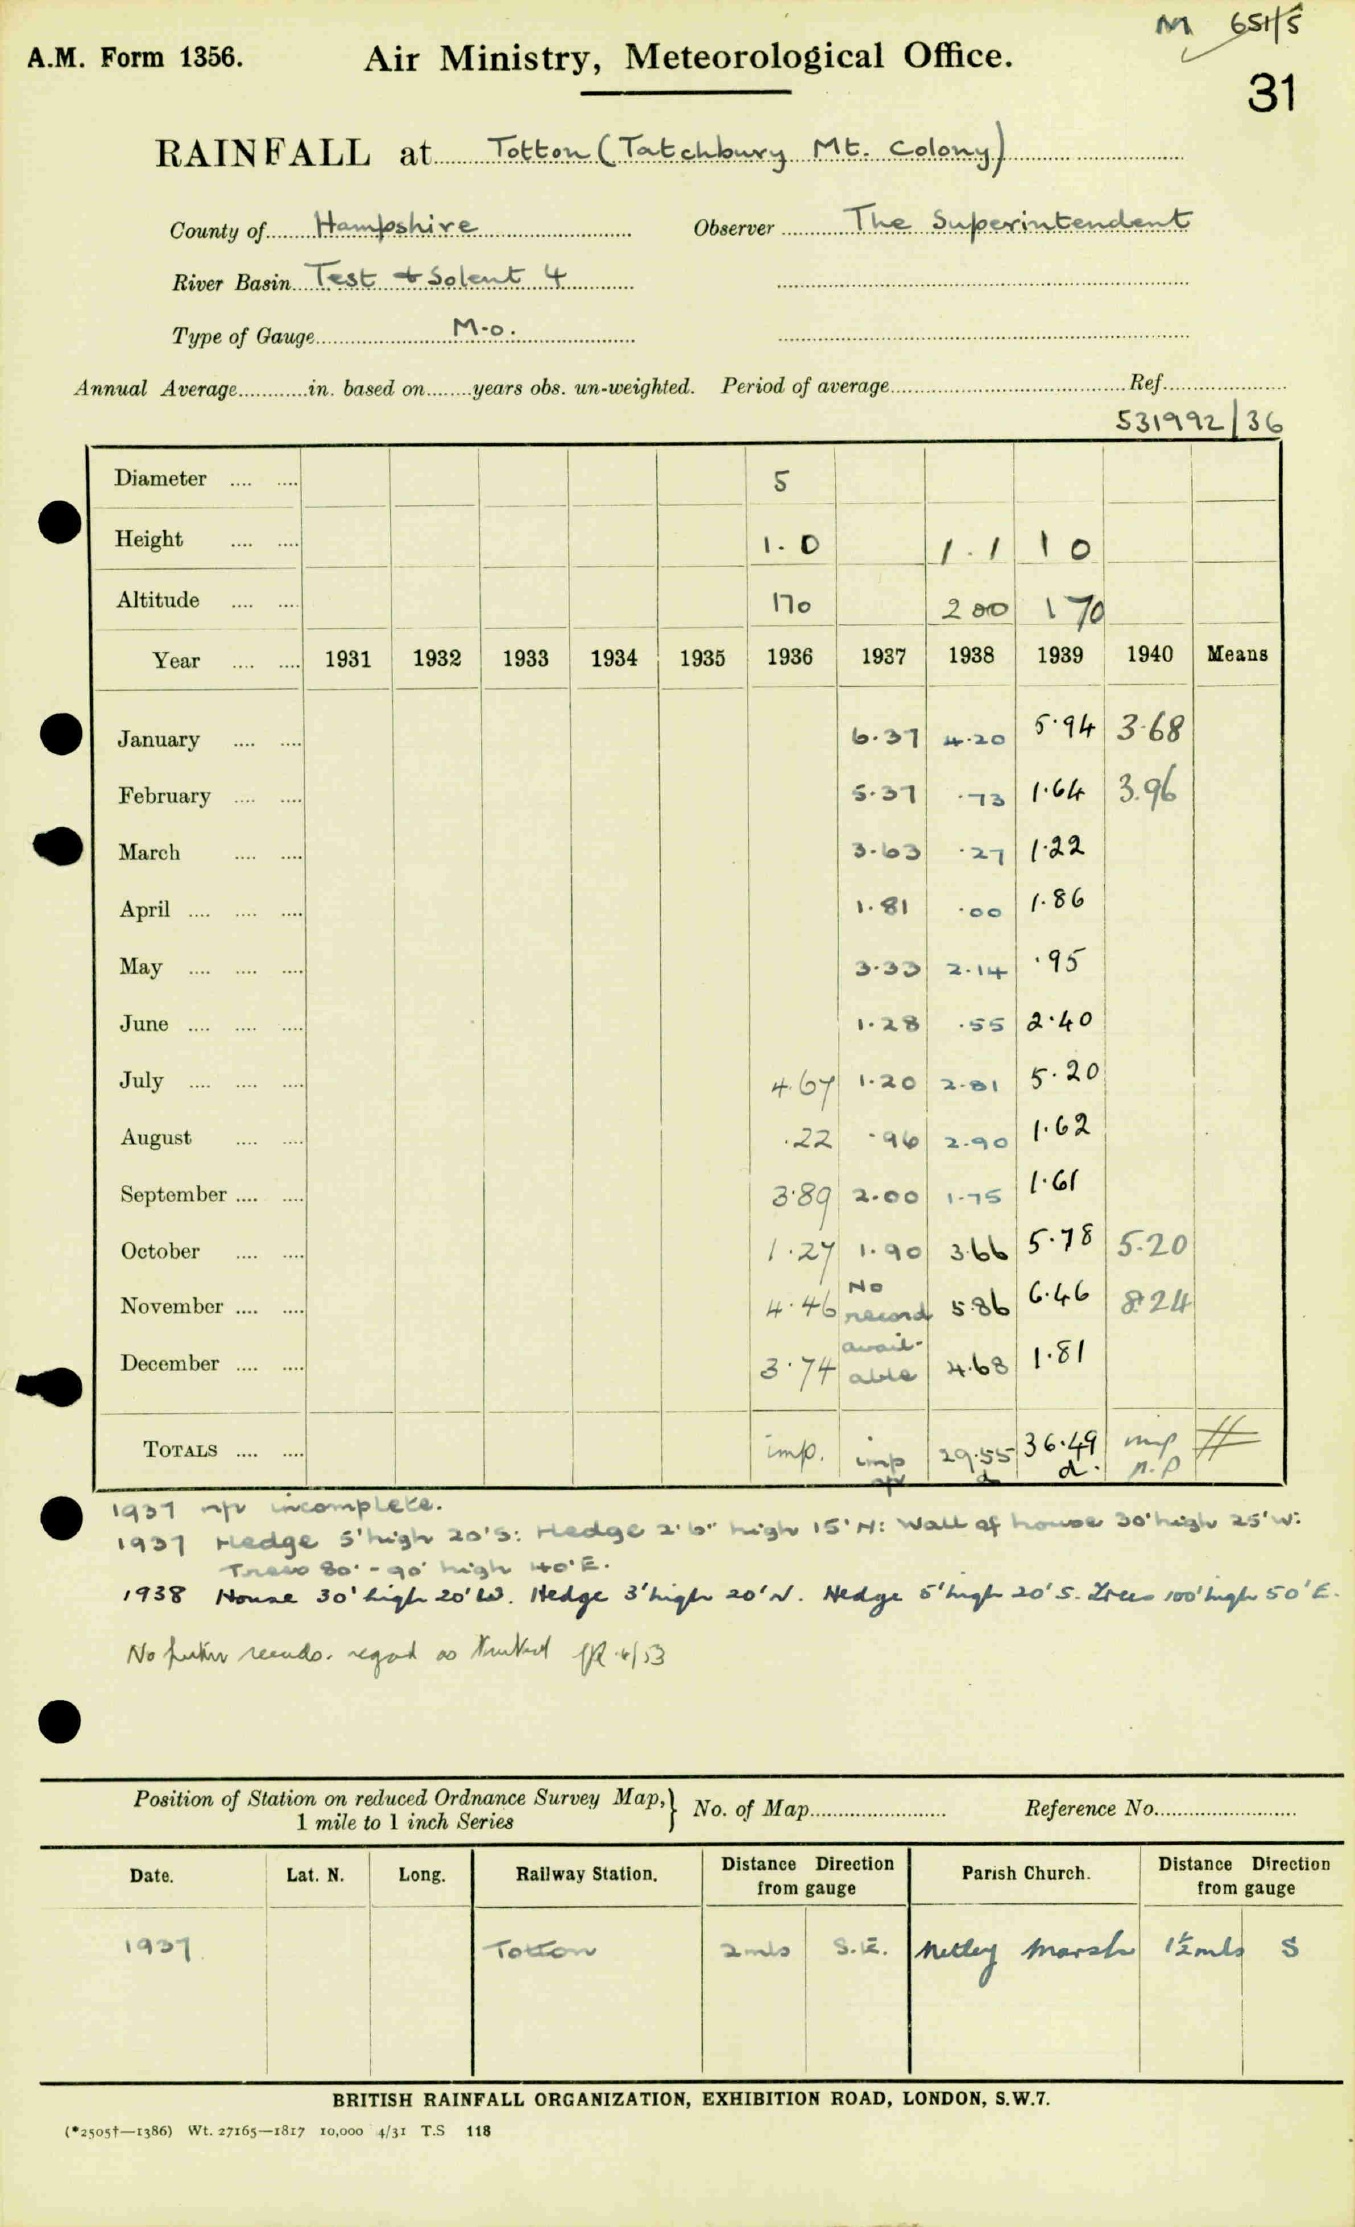 M 651/5
A.M. Form 1356. Air Ministry, Meteorological Office.
31
RAINFALL at Totton (Tatchbury Mt. Colony)
County of Hampshire Observer The Superintendent
River Basin Test & Solent 4
Type of Gauge M.O.
Annual Average in. based on years obs. un-weighted. Period of average Ref.
531992/36
Diameter 5
Height 1.0 1.1 1 0
Altitude 170 200 170
Year 1931 1932 1933 1934 1935 1936 1937 1938 1939 1940 Means
January 6.37 4.20 5.94 3.68
February 5.37 .73 1.64 3.96
March 3.63 .27 1.22
April 1.81 .00 1.86
May 3.33 2.14 .95
June 1.28 .55 2.40
July 4.67 1.20 2.81 5.20
August .22 .96 2.90 1.62
September 3.89 2.00 1.75 1.61
October 1.27 1.90 3.66 5.78 5.20
November 4.46 No record 5.86 6.46 8.24
December 3.74 avail-able 4.68 1.81
TOTALS imp. imp 29.55 36.49 imp
d d. n.p
1937 incomplete.
1937 Hedge 5' high 20' S: Hedge 2'6" high 15' N: Wall of house 30' high 25' W:
Trees 80' - 90' high 40' E.
1938 House 30' high 20' W. Hedge 3' high 20' N. Hedge 5' high 20' S. Trees 100' high 50' E.
No further records. regard as
Position of Station on reduced Ordnance Survey Map, 1 mile to 1 inch Series } No. of Map Reference No.
Date. Lat. N. Long. Railway Station. Distance Direction from gauge Parish Church. Distance Direction from gauge
1937 Totton 2 mls S.E. Netley Marsh 1½ mls S
BRITISH RAINFALL ORGANIZATION, EXHIBITION ROAD, LONDON, S.W.7.
(*2505†—1386) Wt. 27165—1817 10,000 4/31 T.S 118